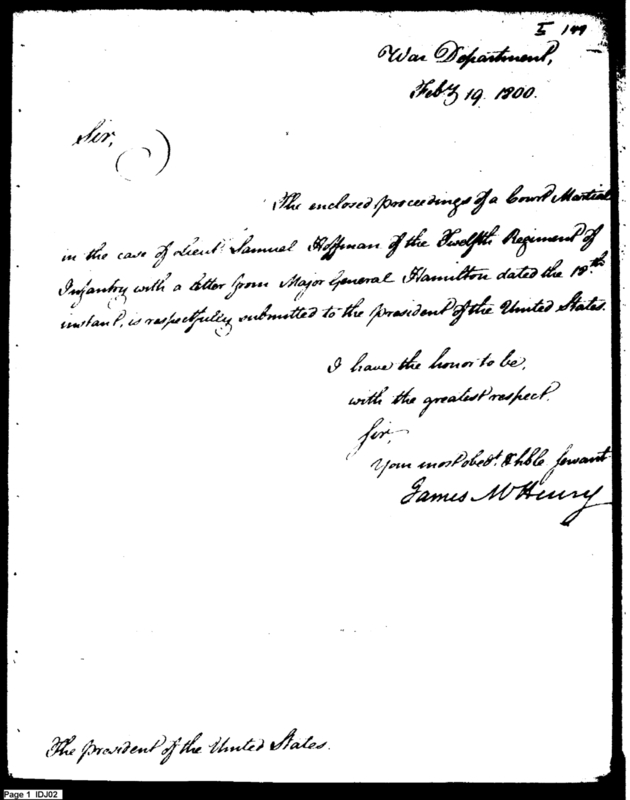 I 149
War Department,
Feby 19. 1800.
Sir,
The enclosed proceedings of a Court Martial
in the case of Lieut. Samuel Hoffman of the Twelfth Regiment of
Infantry with a letter from Major General Hamilton dated the 18th
instant, is respectfully submitted to the president of the United States.
I have the honor to be,
with the greatest respect.
Sir,
Your most obedt. & hble servant
James McHenry
The president of the United States.
Page 1 IDJ02